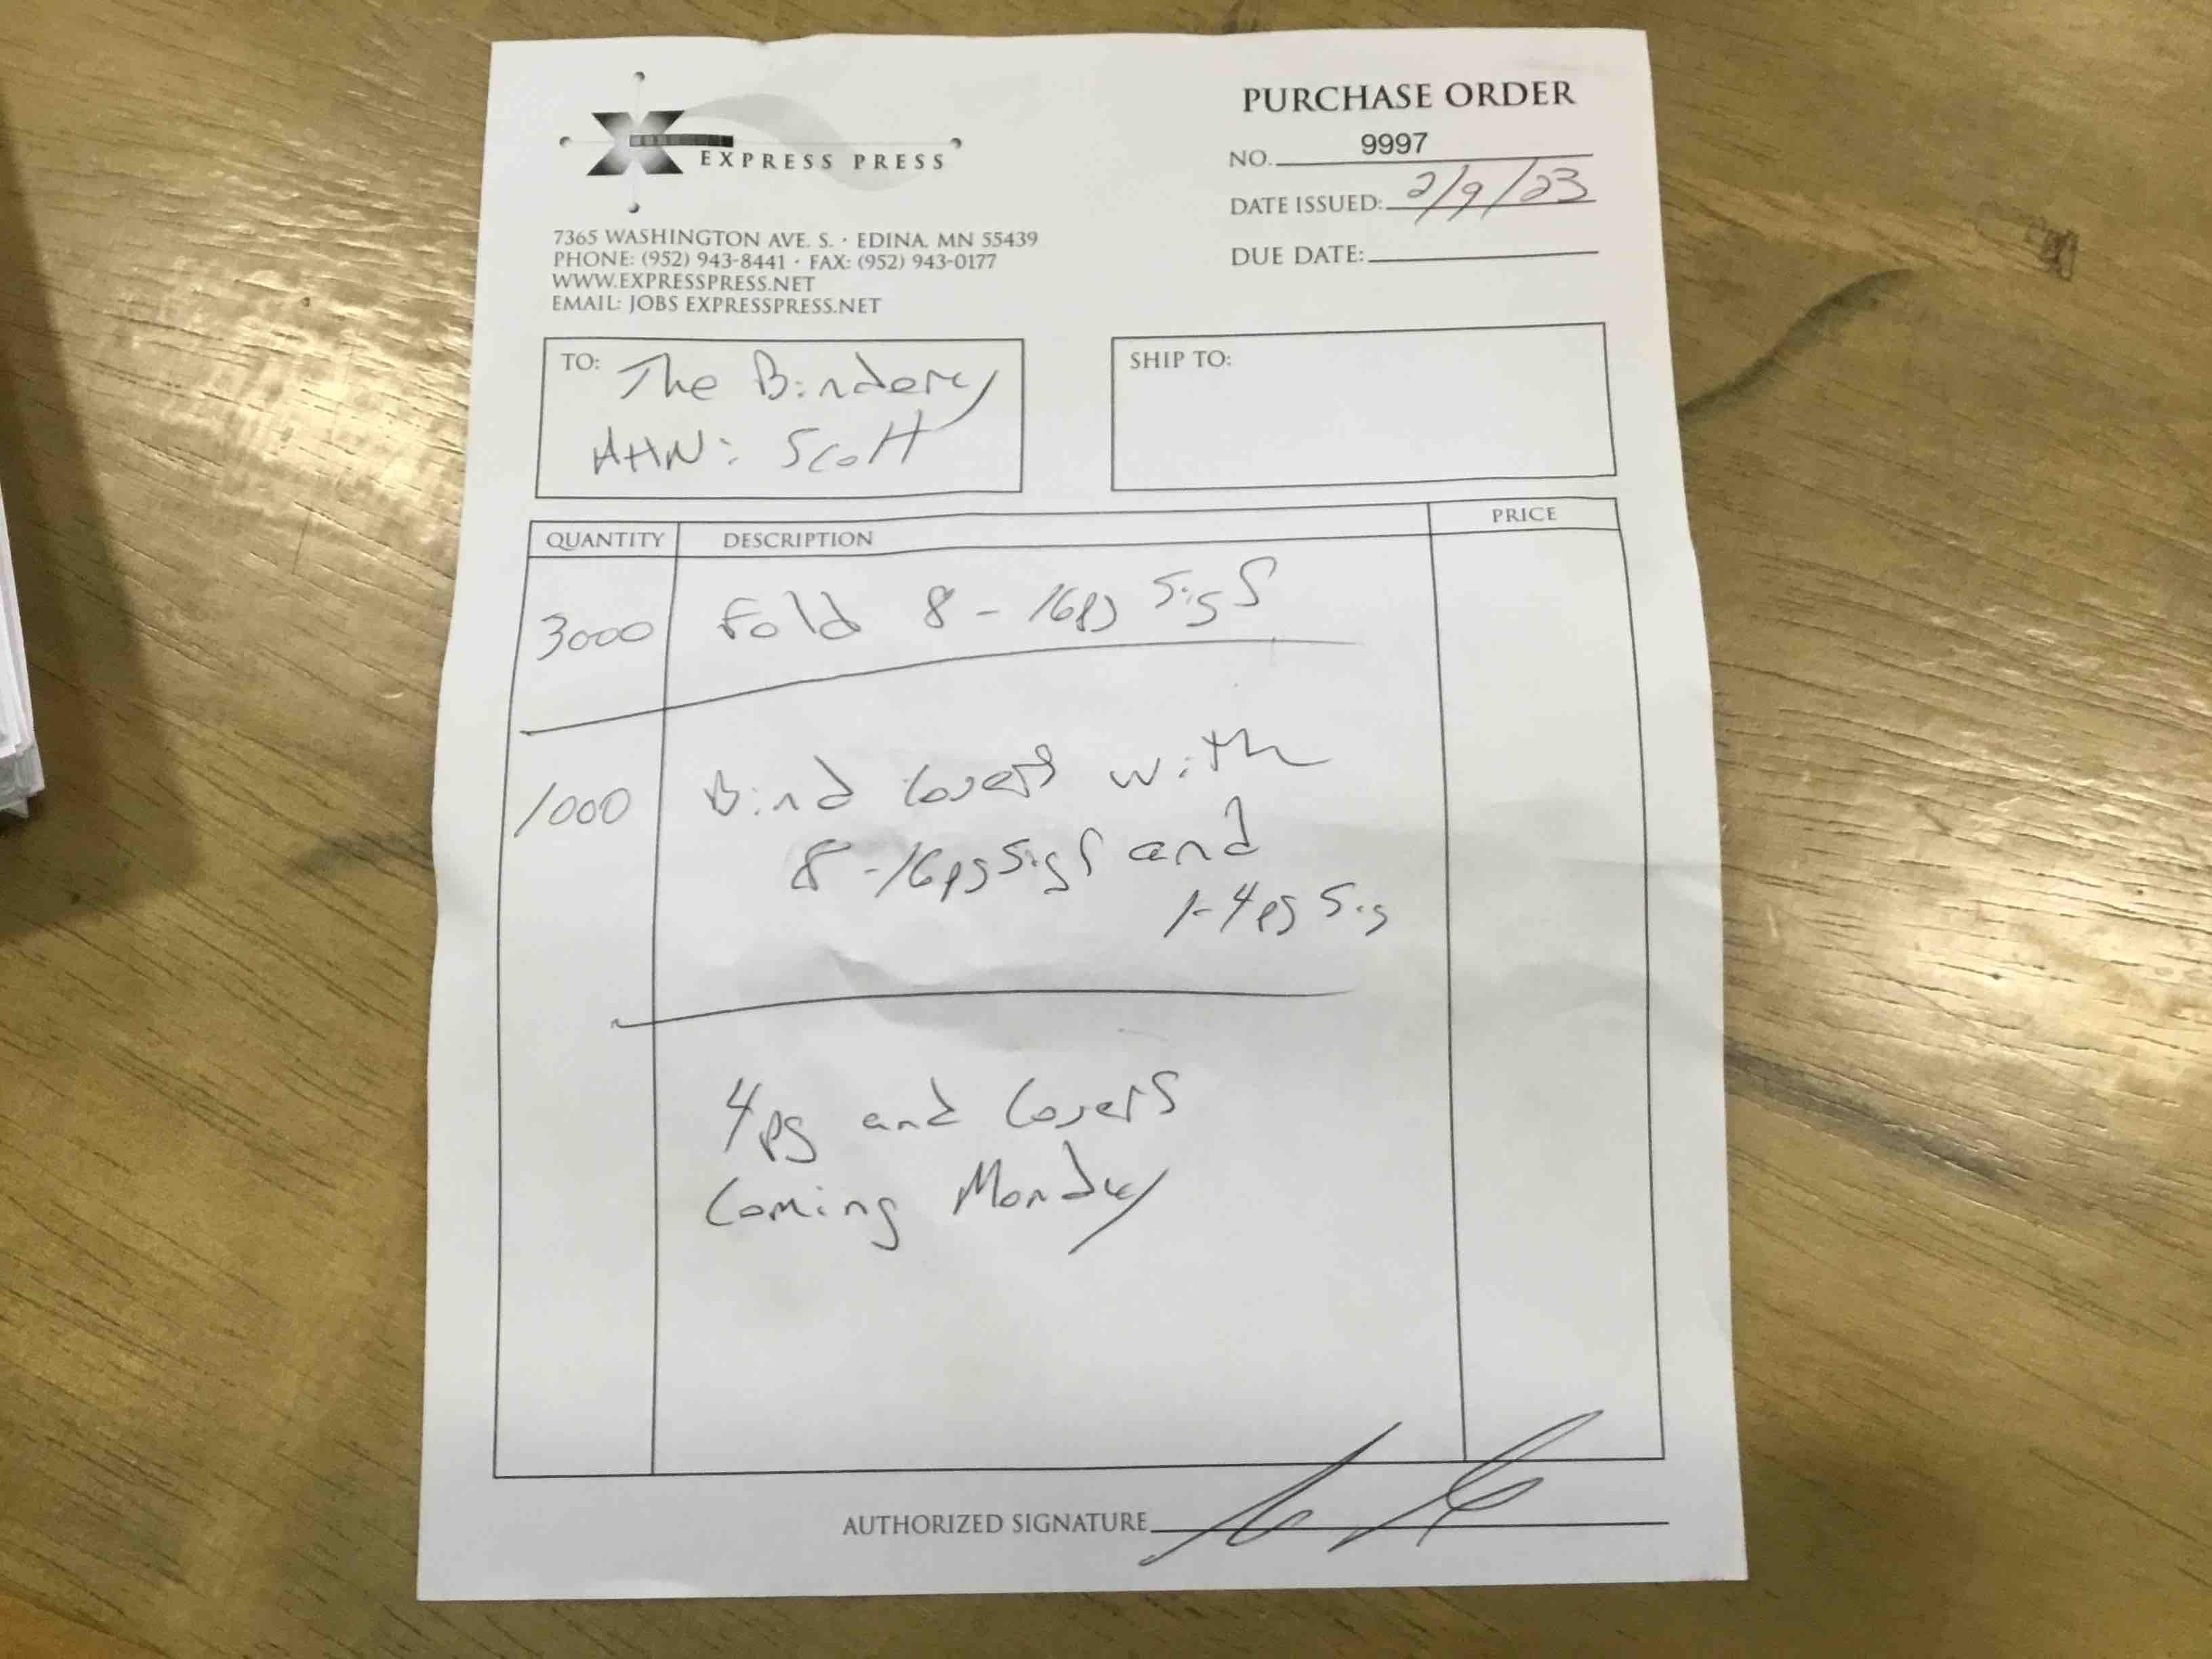 EXPRESS PRESS
7365 WASHINGTON AVE. S. · EDINA, MN 55439
PHONE: (952) 943-8441 · FAX: (952) 943-0177
WWW.EXPRESSPRESS.NET
EMAIL: JOBS EXPRESSPRESS.NET
PURCHASE ORDER
NO. 9997
DATE ISSUED: 2/9/23
DUE DATE:
TO: The Bindery
Attn: Scott
SHIP TO:
QUANTITY DESCRIPTION PRICE
3000 Fold 8 - 16pg sigs
1000 Bind Covers with
8 - 16pg sigs and
1 - 4pg sig
4pg and Covers
Coming Monday
AUTHORIZED SIGNATURE